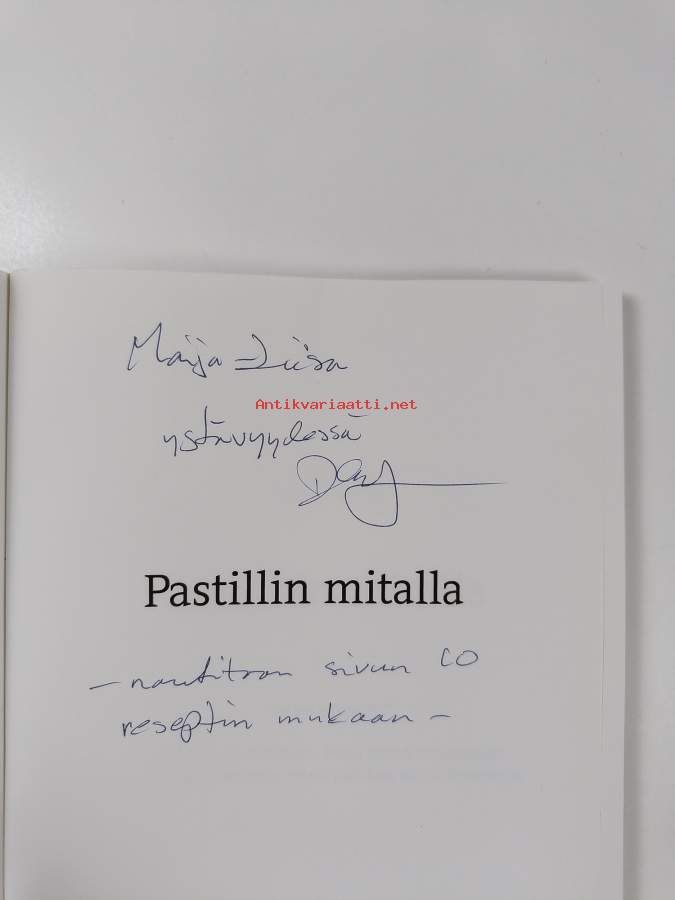 Maija-Liisa
Antikvariaatti.net
ystävyydessä
Pastillin mitalla
- nautitaan sivun
reseptin mukaan -